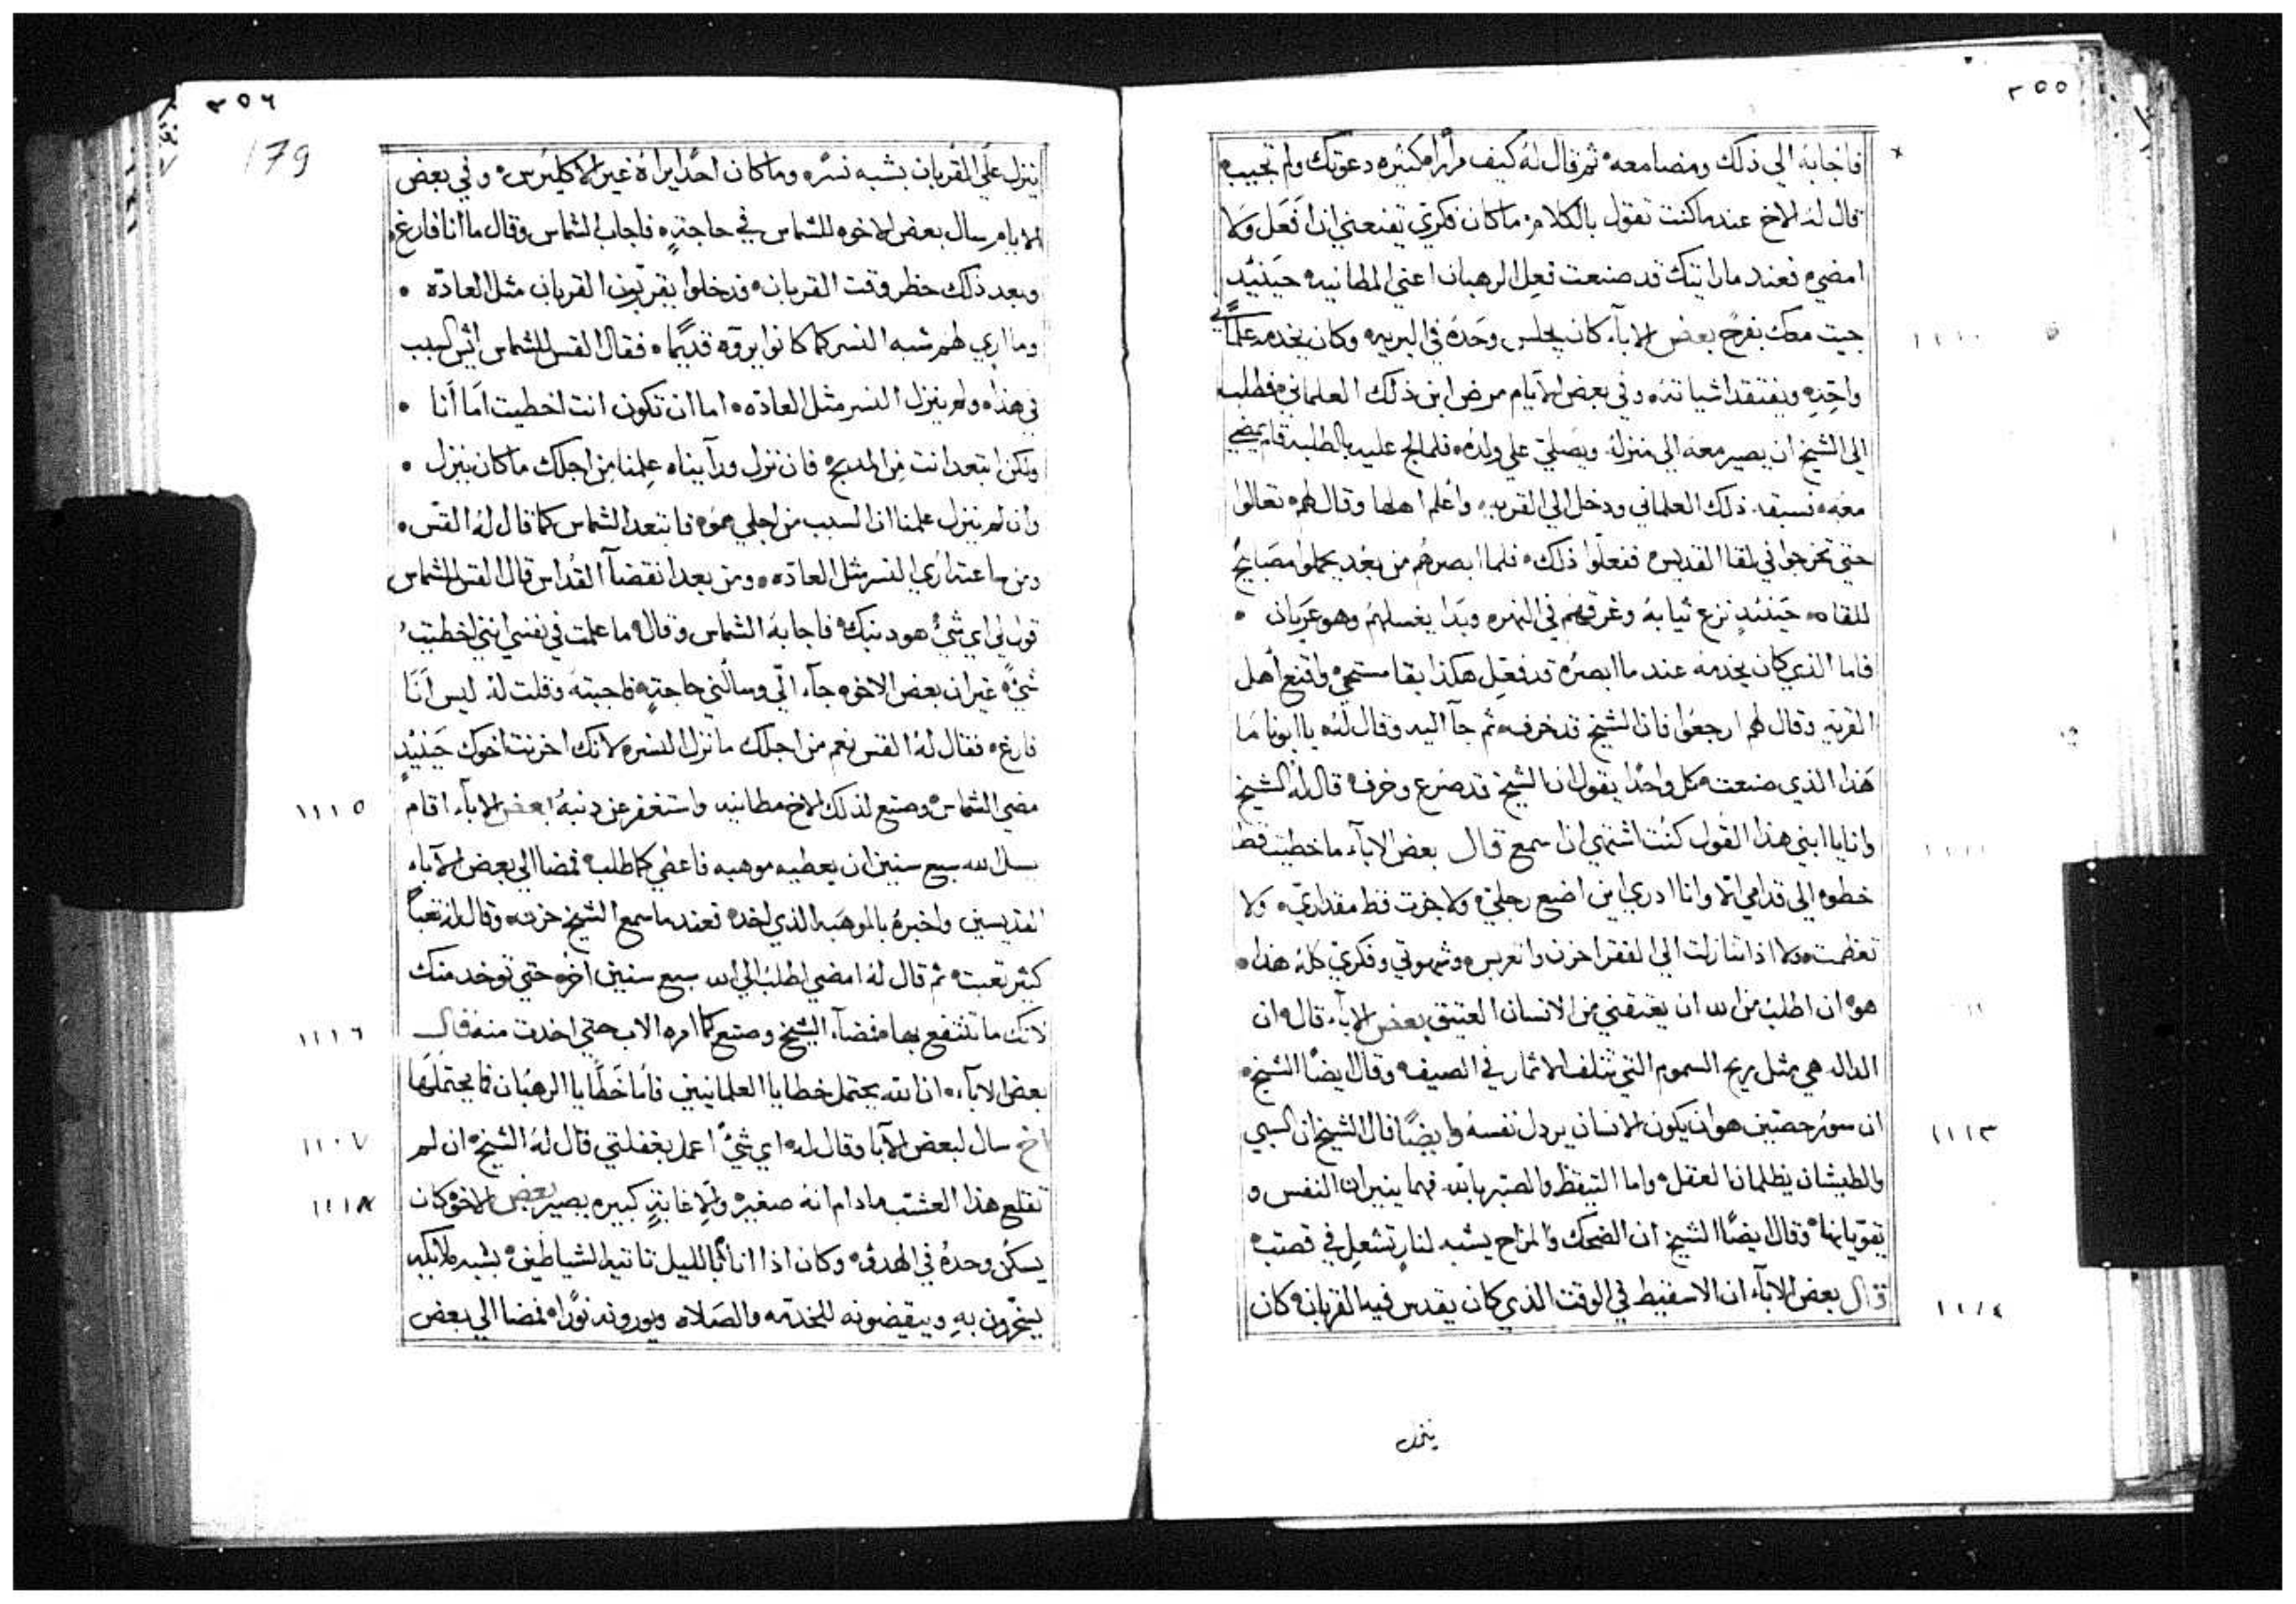 ٣٥٥
فاجابه الي ذلك ومضا معه ثم قال له كيف مرارا كثيره دعوتك ولم تجيب
قال له الاخ عندما كنت تقول بالكلام ما كان فكري يقنعني ان افعل ولا
امضي فعند ما رايتك قد صنعت فعل الرهبان اعني المطانيه حينيد
جيت معك بفرح بعض الاباء كان يجلس وحده في البريه وكان يخدمه علماني
١١١٠
واحد ويفتقد اشياته وفي بعض الايام مرض ابن ذلك العلماني فطلب
الي الشيخ ان يصير معه الي منزله ويصلي علي ولده فلما لج عليه بالطلبه قام يمضي
معه فسبقه ذلك العلماني ودخل الي القريه واعلم اهلها وقال لهم تعالوا
حتي تخرجوا في لقا القديس ففعلوا ذلك فلما ابصرهم من بعد يحملوا مصابيح
للقاه حينيد نزع ثيابه وغرقهم في النهر وبدا يغسلهم وهو عريان
فاما الذي كان يخدمه عند ما ابصره قد فعل هكذا بقا مستحي واقنع اهل
القريه وقال لهم ارجعوا فان الشيخ قد خرف ثم جا اليه وقال له يا ابونا ما
هذا الذي صنعت كل واحد يقول ان الشيخ قد صرع وخرف قال له الشيخ
وانا يا ابني هذا القول كنت اشتهي ان اسمع قال بعض الاباء ما خطيت قط
١١١١
خطوه الي قدامي الا وانا ادري اين اضع رجلي ولا جزت قط مقداري ولا
تعظمت ولا اذا تنازلت الي الفقر احزن وا وشهوتي وفكري كله هذا
هو ان اطلب من الله ان يعتقني من الانسان العتيق بعض الاباء قال ان
الداله هي مثل ريح السموم التي تتلف الاثمار في الصيف وقال ايضًا الشيخ
ان سور حصين هو ان يكون الانسان يردل نفسه وايضًا قال الشيخ ان السبي
١١١٣
والطيشان يظلمان العقل واما التيقظ والصبر بالله فهما ينيران النفس و
يقويانها وقال ايضًا الشيخ ان الضحك والمزاح يشبه لنار تشعل في قصب
قال بعض الاباء ان الاسقيط في الوقت الذي كان يقدس فيه القربان كان
١١١٤
ينزل
٣٥٦
179
ينزل علي القربان بشبه نسر وما كان احدًا يراه غير الاكليرس وفي بعض
الايام سال بعض الاخوه للشماس في حاجة فاجاب الشماس وقال ما انا فارغ
وبعد ذلك حظر وقت القربان فدخلوا يقربون القربان مثل العاده
وما اري لهم شبه النسر كما كانوا يروه قديمًا فقال القس للشماس ايش السبب
في هذا ولم ينزل النسر مثل العاده اما ان تكون انت اخطيت اما انا
ولكن ابتعد انت من المدبح فان نزل ورايناه علمنا من اجلك ما كان ينزل
وان لم ينزل علمنا ان السبب من اجلي هو فابتعد الشماس كما قال له القس
ومن ساعته اري النسر مثل العاده ومن بعد انقضا القداس قال القس للشماس
قول لي اي شي هو دنبك فاجابه الشماس وقال ما علمت في نفسي انني اخطيت
شي غير ان بعض الاخوه جاء الي وسالني حاجة فاجبته وقلت له ليس انا
فارغ فقال له القس نعم من اجلك ما نزل النسر لانك احزنت اخوك حينيد
مضي الشماس وصنع لذلك الاخ مطانيه واستغفر عن دنبه بعض الاباء اقام
١١١٥
يسل الله سبع سنين ان يعطيه موهبه فاعطي كما طلب فمضا الي بعض الاباء
القديسين واخبره بالموهبه الذي اخد فعند ما سمع الشيخ حزن وقال له تعبًا
كثير تعبت ثم قال له امضي اطلب الي الله سبع سنين اخر حتي توخد منك
لانك ما تنتفع بها فمضا الشيخ وصنع كما امره الاب حتي اخدت منه قال
١١١٦
بعض الاباء ان الله يحتمل خطايا العلمانيين فاما خطايا الرهبان فما يحتملها
اخ سال لبعض الابا وقال له اي شي اعمل بغفلتي قال له الشيخ ان لم
١١٠٧
تقلع هذا العشب مادام انه صغير والا غابة كبيره يصير بعض الاخوه كان
١١١٨
يسكن وحده في الهدو وكان اذا انا بالليل تاتيه الشياطين بشبه ملايكه
يسخرون به ويبقيضونه للخدمه والصلاه ويوروه نورا فمضا الي بعض